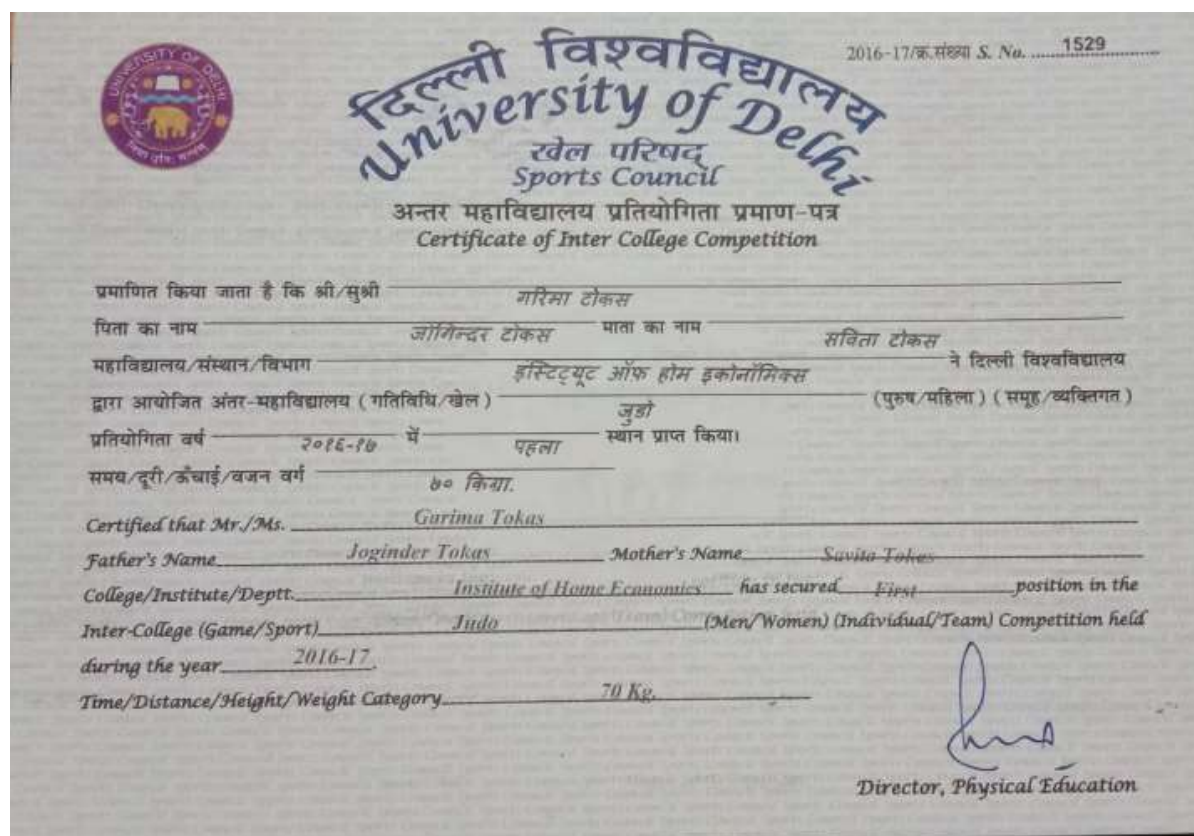 UNIVERSITY OF DELHI
2016-17/क्र.संख्या S. No. 1529
दिल्ली विश्वविद्यालय
University of Delhi
खेल परिषद्
Sports Council
अन्तर महाविद्यालय प्रतियोगिता प्रमाण-पत्र
Certificate of Inter College Competition
प्रमाणित किया जाता है कि श्री/सुश्री गरिमा टोकस
पिता का नाम जोगिन्दर टोकस माता का नाम सविता टोकस
महाविद्यालय/संस्थान/विभाग इंस्टिट्यूट ऑफ़ होम इकोनॉमिक्स ने दिल्ली विश्वविद्यालय
द्वारा आयोजित अंतर-महाविद्यालय (गतिविधि/खेल) जुडो (पुरुष/महिला) (समूह/व्यक्तिगत)
प्रतियोगिता वर्ष २०१६-१७ में पहला स्थान प्राप्त किया।
समय/दूरी/ऊँचाई/वजन वर्ग ७० किग्रा.
Certified that Mr./Ms. Garima Tokas
Father's Name Joginder Tokas Mother's Name Savita Tokas
College/Institute/Deptt. Institute of Home Economics has secured First position in the
Inter-College (Game/Sport) Judo (Men/Women) (Individual/Team) Competition held
during the year 2016-17.
Time/Distance/Height/Weight Category 70 Kg.
Director, Physical Education